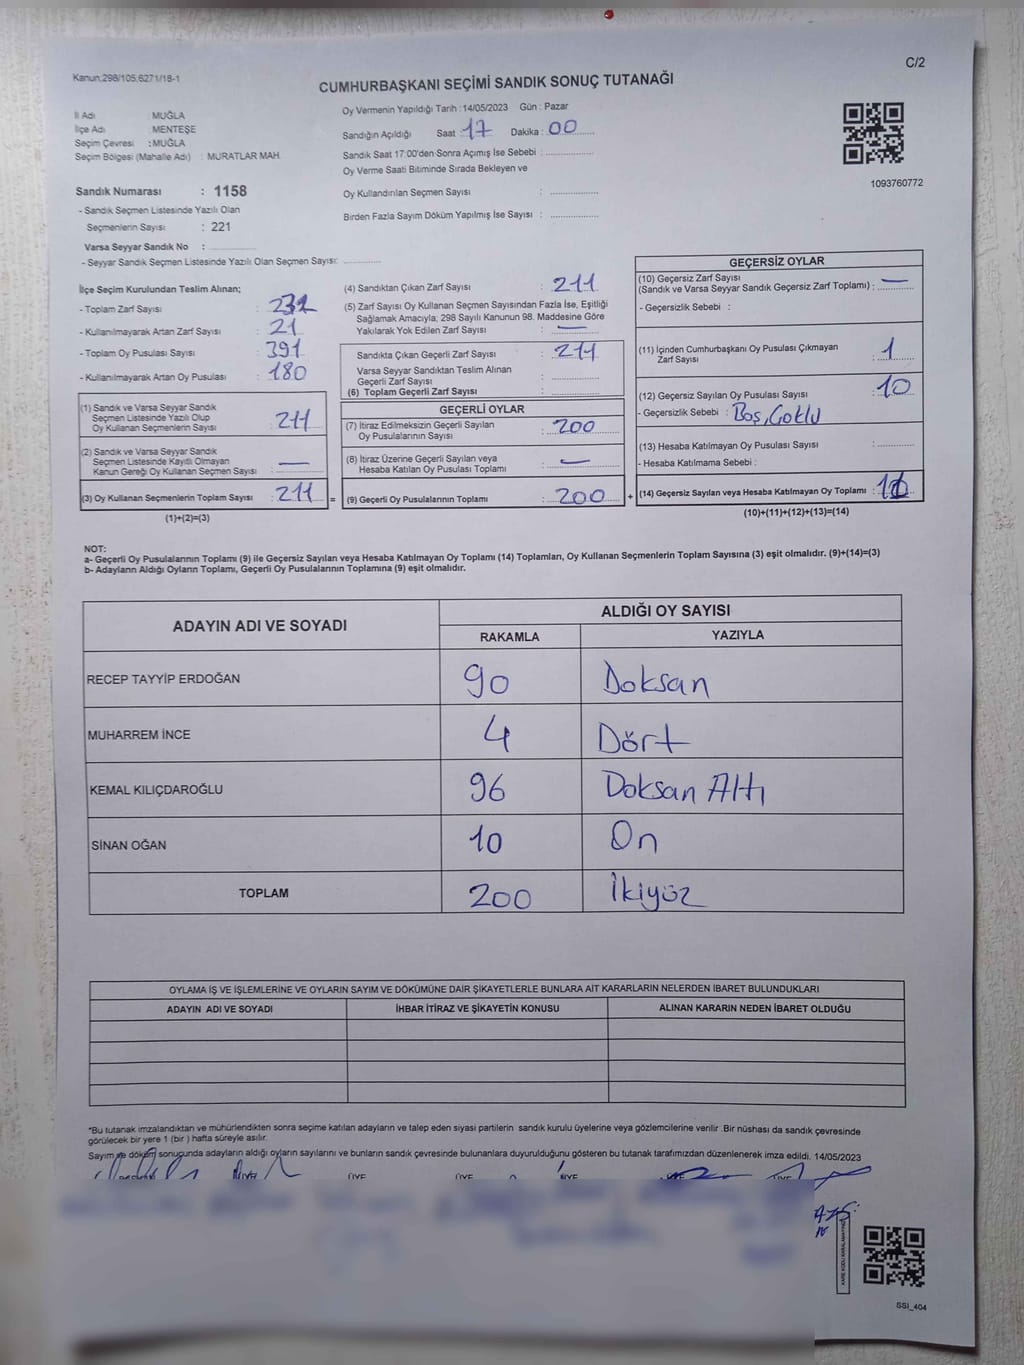 C/2
Kanun:298/105;6271/18-1
CUMHURBAŞKANI SEÇİMİ SANDIK SONUÇ TUTANAĞI
İl Adı : MUĞLA
İlçe Adı : MENTEŞE
Seçim Çevresi : MUĞLA
Seçim Bölgesi (Mahalle Adı) : MURATLAR MAH.
Sandık Numarası : 1158
- Sandık Seçmen Listesinde Yazılı Olan
Seçmenlerin Sayısı : 221
Varsa Seyyar Sandık No :
- Seyyar Sandık Seçmen Listesinde Yazılı Olan Seçmen Sayısı:
Oy Vermenin Yapıldığı Tarih :14/05/2023 Gün : Pazar
Sandığın Açıldığı Saat 17 Dakika : 00
Sandık Saat 17:00'den Sonra Açımış İse Sebebi :
Oy Verme Saati Bitiminde Sırada Bekleyen ve
Oy Kullandırılan Seçmen Sayısı :
Birden Fazla Sayım Döküm Yapılmış İse Sayısı :
1093760772
İlçe Seçim Kurulundan Teslim Alınan;
- Toplam Zarf Sayısı :
- Kullanılmayarak Artan Zarf Sayısı : 21
- Toplam Oy Pusulası Sayısı : 391
- Kullanılmayarak Artan Oy Pusulası : 180
(1) Sandık ve Varsa Seyyar Sandık
Seçmen Listesinde Yazılı Olup
Oy Kullanan Seçmenlerin Sayısı : 211
(2) Sandık ve Varsa Seyyar Sandık
Seçmen Listesinde Kayıtlı Olmayan
Kanun Gereği Oy Kullanan Seçmen Sayısı : —
(3) Oy Kullanan Seçmenlerin Toplam Sayısı : 211 =
(1)+(2)=(3)
(4) Sandıktan Çıkan Zarf Sayısı : 211
(5) Zarf Sayısı Oy Kullanan Seçmen Sayısından Fazla İse, Eşitliği
Sağlamak Amacıyla; 298 Sayılı Kanunun 98. Maddesine Göre
Yakılarak Yok Edilen Zarf Sayısı : —
Sandıkta Çıkan Geçerli Zarf Sayısı : 211
Varsa Seyyar Sandıktan Teslim Alınan
Geçerli Zarf Sayısı :
(6) Toplam Geçerli Zarf Sayısı :
GEÇERLİ OYLAR
(7) İtiraz Edilmeksizin Geçerli Sayılan
Oy Pusulalarının Sayısı : 200
(8) İtiraz Üzerine Geçerli Sayılan veya
Hesaba Katılan Oy Pusulası Toplamı : —
(9) Geçerli Oy Pusulalarının Toplamı : 200 +
GEÇERSİZ OYLAR
(10) Geçersiz Zarf Sayısı
(Sandık ve Varsa Seyyar Sandık Geçersiz Zarf Toplamı) : —
- Geçersizlik Sebebi :
(11) İçinden Cumhurbaşkanı Oy Pusulası Çıkmayan
Zarf Sayısı : 1
(12) Geçersiz Sayılan Oy Pusulası Sayısı : 10
- Geçersizlik Sebebi : Boş, Çoklu
(13) Hesaba Katılmayan Oy Pusulası Sayısı :
- Hesaba Katılmama Sebebi :
(14) Geçersiz Sayılan veya Hesaba Katılmayan Oy Toplamı : 11
(10)+(11)+(12)+(13)=(14)
NOT:
a- Geçerli Oy Pusulalarının Toplamı (9) ile Geçersiz Sayılan veya Hesaba Katılmayan Oy Toplamı (14) Toplamları, Oy Kullanan Seçmenlerin Toplam Sayısına (3) eşit olmalıdır. (9)+(14)=(3)
b- Adayların Aldığı Oyların Toplamı, Geçerli Oy Pusulalarının Toplamına (9) eşit olmalıdır.
ADAYIN ADI VE SOYADI ALDIĞI OY SAYISI
RAKAMLA YAZIYLA
RECEP TAYYİP ERDOĞAN 90 Doksan
MUHARREM İNCE 4 Dört
KEMAL KILIÇDAROĞLU 96 Doksan Altı
SİNAN OĞAN 10 On
TOPLAM 200 İkiyüz
OYLAMA İŞ VE İŞLEMLERİNE VE OYLARIN SAYIM VE DÖKÜMÜNE DAİR ŞİKAYETLERLE BUNLARA AİT KARARLARIN NELERDEN İBARET BULUNDUKLARI
ADAYIN ADI VE SOYADI İHBAR İTİRAZ VE ŞİKAYETİN KONUSU ALINAN KARARIN NEDEN İBARET OLDUĞU
*Bu tutanak imzalandıktan ve mühürlendikten sonra seçime katılan adayların ve talep eden siyasi partilerin sandık kurulu üyelerine veya gözlemcilerine verilir .Bir nüshası da sandık çevresinde
görülecek bir yere 1 (bir ) hafta süreyle asılır.
Sayım ve döküm sonucunda adayların aldığı oyların sayılarını ve bunların sandık çevresinde bulunanlara duyurulduğunu gösteren bu tutanak tarafımızdan düzenlenerek imza edildi. 14/05/2023
ÜYE ÜYE ÜYE
KARE KODU KARALAMAYINIZ
SSİ_404